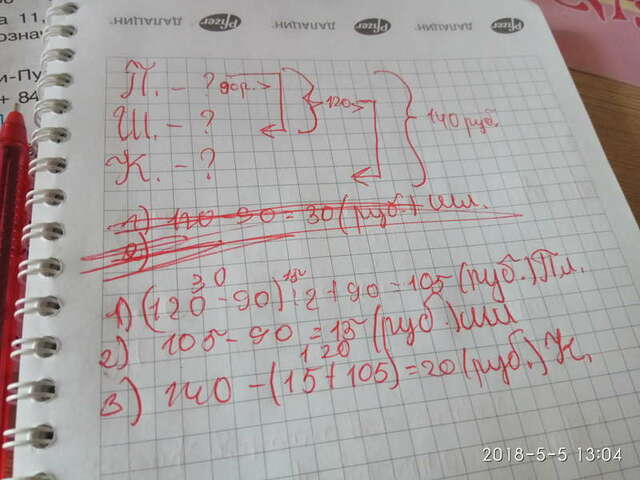 ДАЛАЦИН. Pfizer ДАЛАЦИН. Pfizer ДАЛАЦИН. Pfizer
а 11,
означ
и-Пу
+ 84
П. – ? 90р. >
Ш. – ? } 120 } 140 руб.
К. – ?
1) 120 - 90 = 30 (руб.) шл.
2)
30
1) (120 - 90) : 2 + 90 = 105 (руб.) Пл.
2) 105 - 90 = 15 (руб.) шл
120
3) 140 - (15 + 105) = 20 (руб.) К.
2018-5-5 13:04